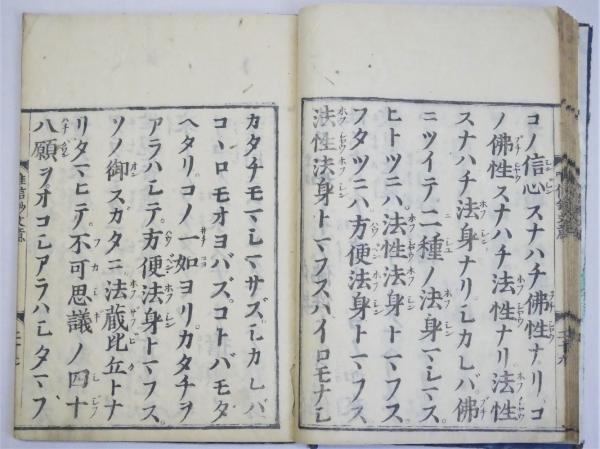 コノ信心スナハチ佛性ナリコ
ノ佛性スナハチ法性ナリ法性
スナハチ法身ナリシカレバ佛
ニツイテ二種ノ法身マシマス。
ヒトツニハ法性法身トマフス
フタツニハ方便法身トマフス
法性法身トマフスハイロモナシ
カタチモマシマサズシカレバ
コヽロモオヨバズコトバモタ
ヘタリコノ一如ヨリカタチヲ
アラハシテ方便法身トマフス。
ソノ御スガタニ法蔵比丘トナ
リタマヒテ不可思議ノ四十
八願ヲオコシアラハシタマフ